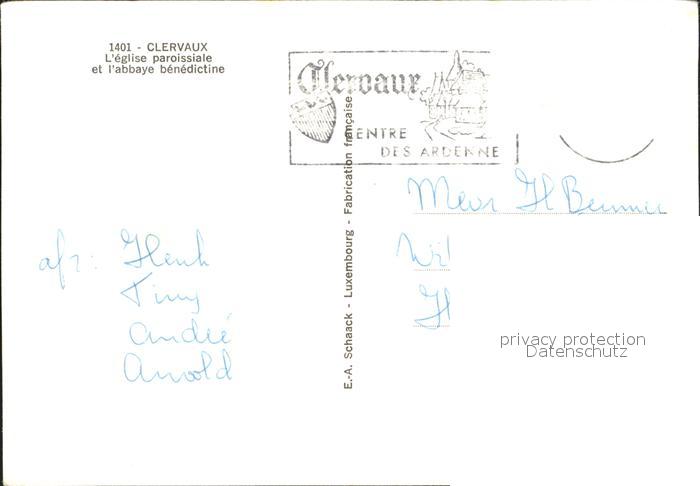 1401 - CLERVAUX
L'église paroissiale
et l'abbaye bénédictine
Clervaux
CENTRE
DES ARDENNE
E.-A. Schaack - Luxembourg - Fabrication française
Mevr H
afz: Henk
Tiny
André
Arnold
H
privacy protection
Datenschutz